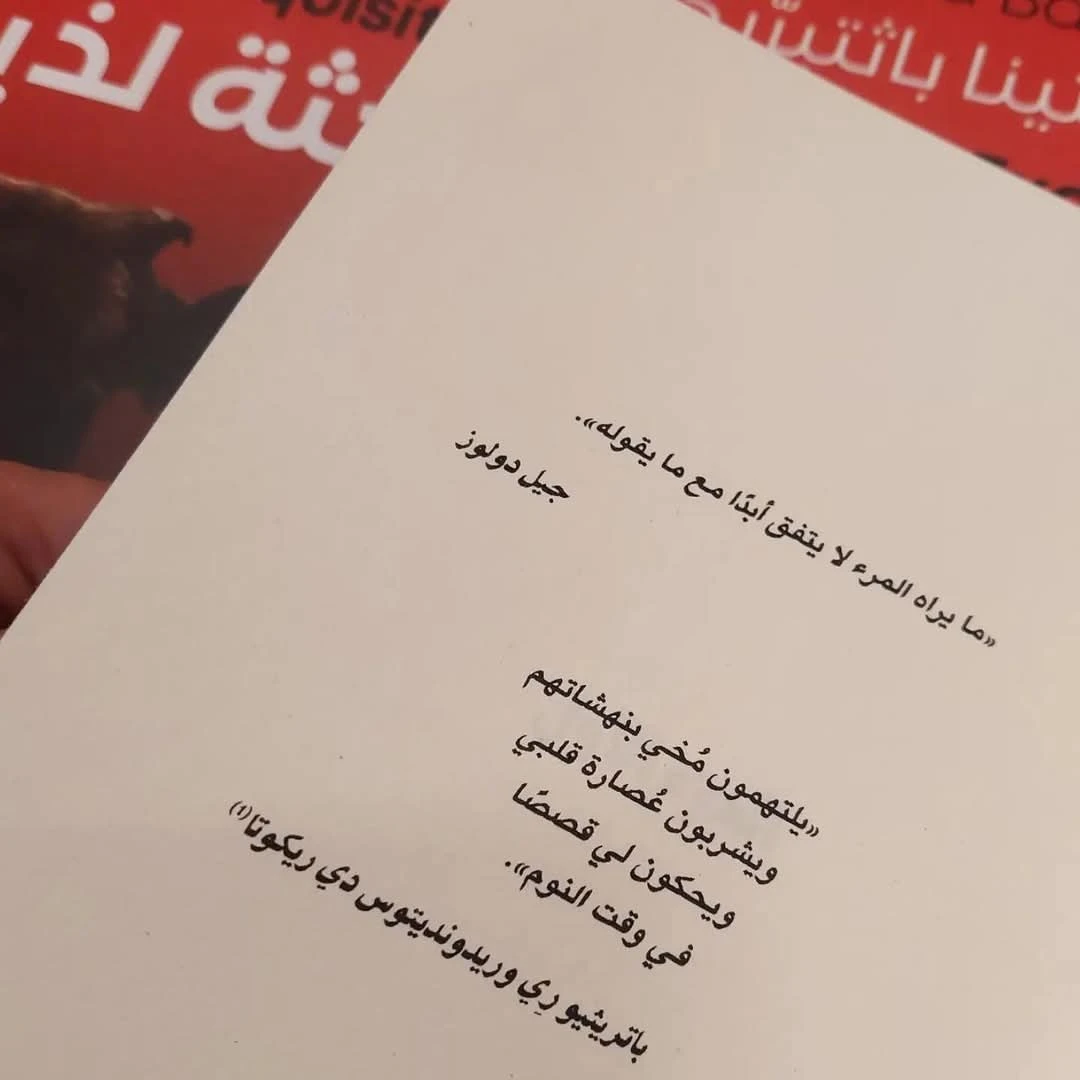 «ما يراه المرء لا يتفق أبدًا مع ما يقوله».
جيل دولوز
«يلتهمون مُخي بنهشاتهم
ويشربون عُصارة قلبي
ويحكون لي قصصًا
في وقت النوم».
باتريثيو رِي وريدونديتوس دي ريكوتا(1)